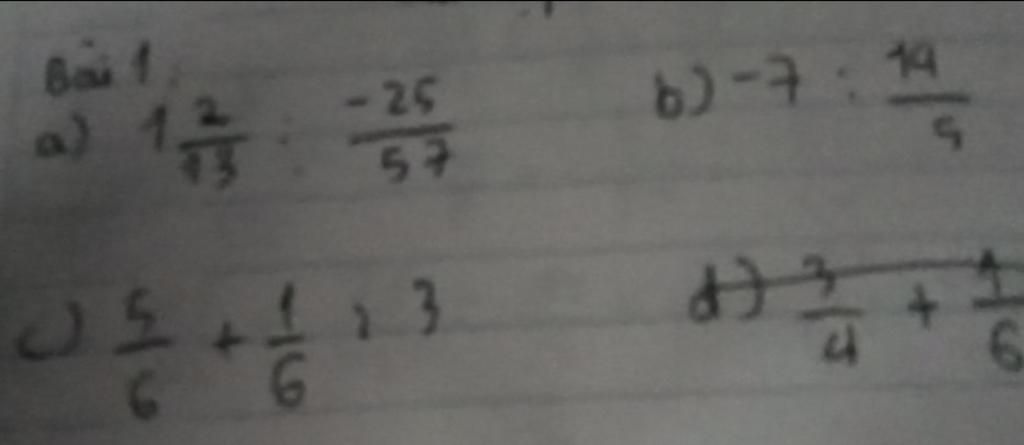 Bài 1:
a) 1 2/13 : -25/57 b) -7 : 14/5
c) 5/6 + 1/6 : 3 d) 3/4 + 1/6